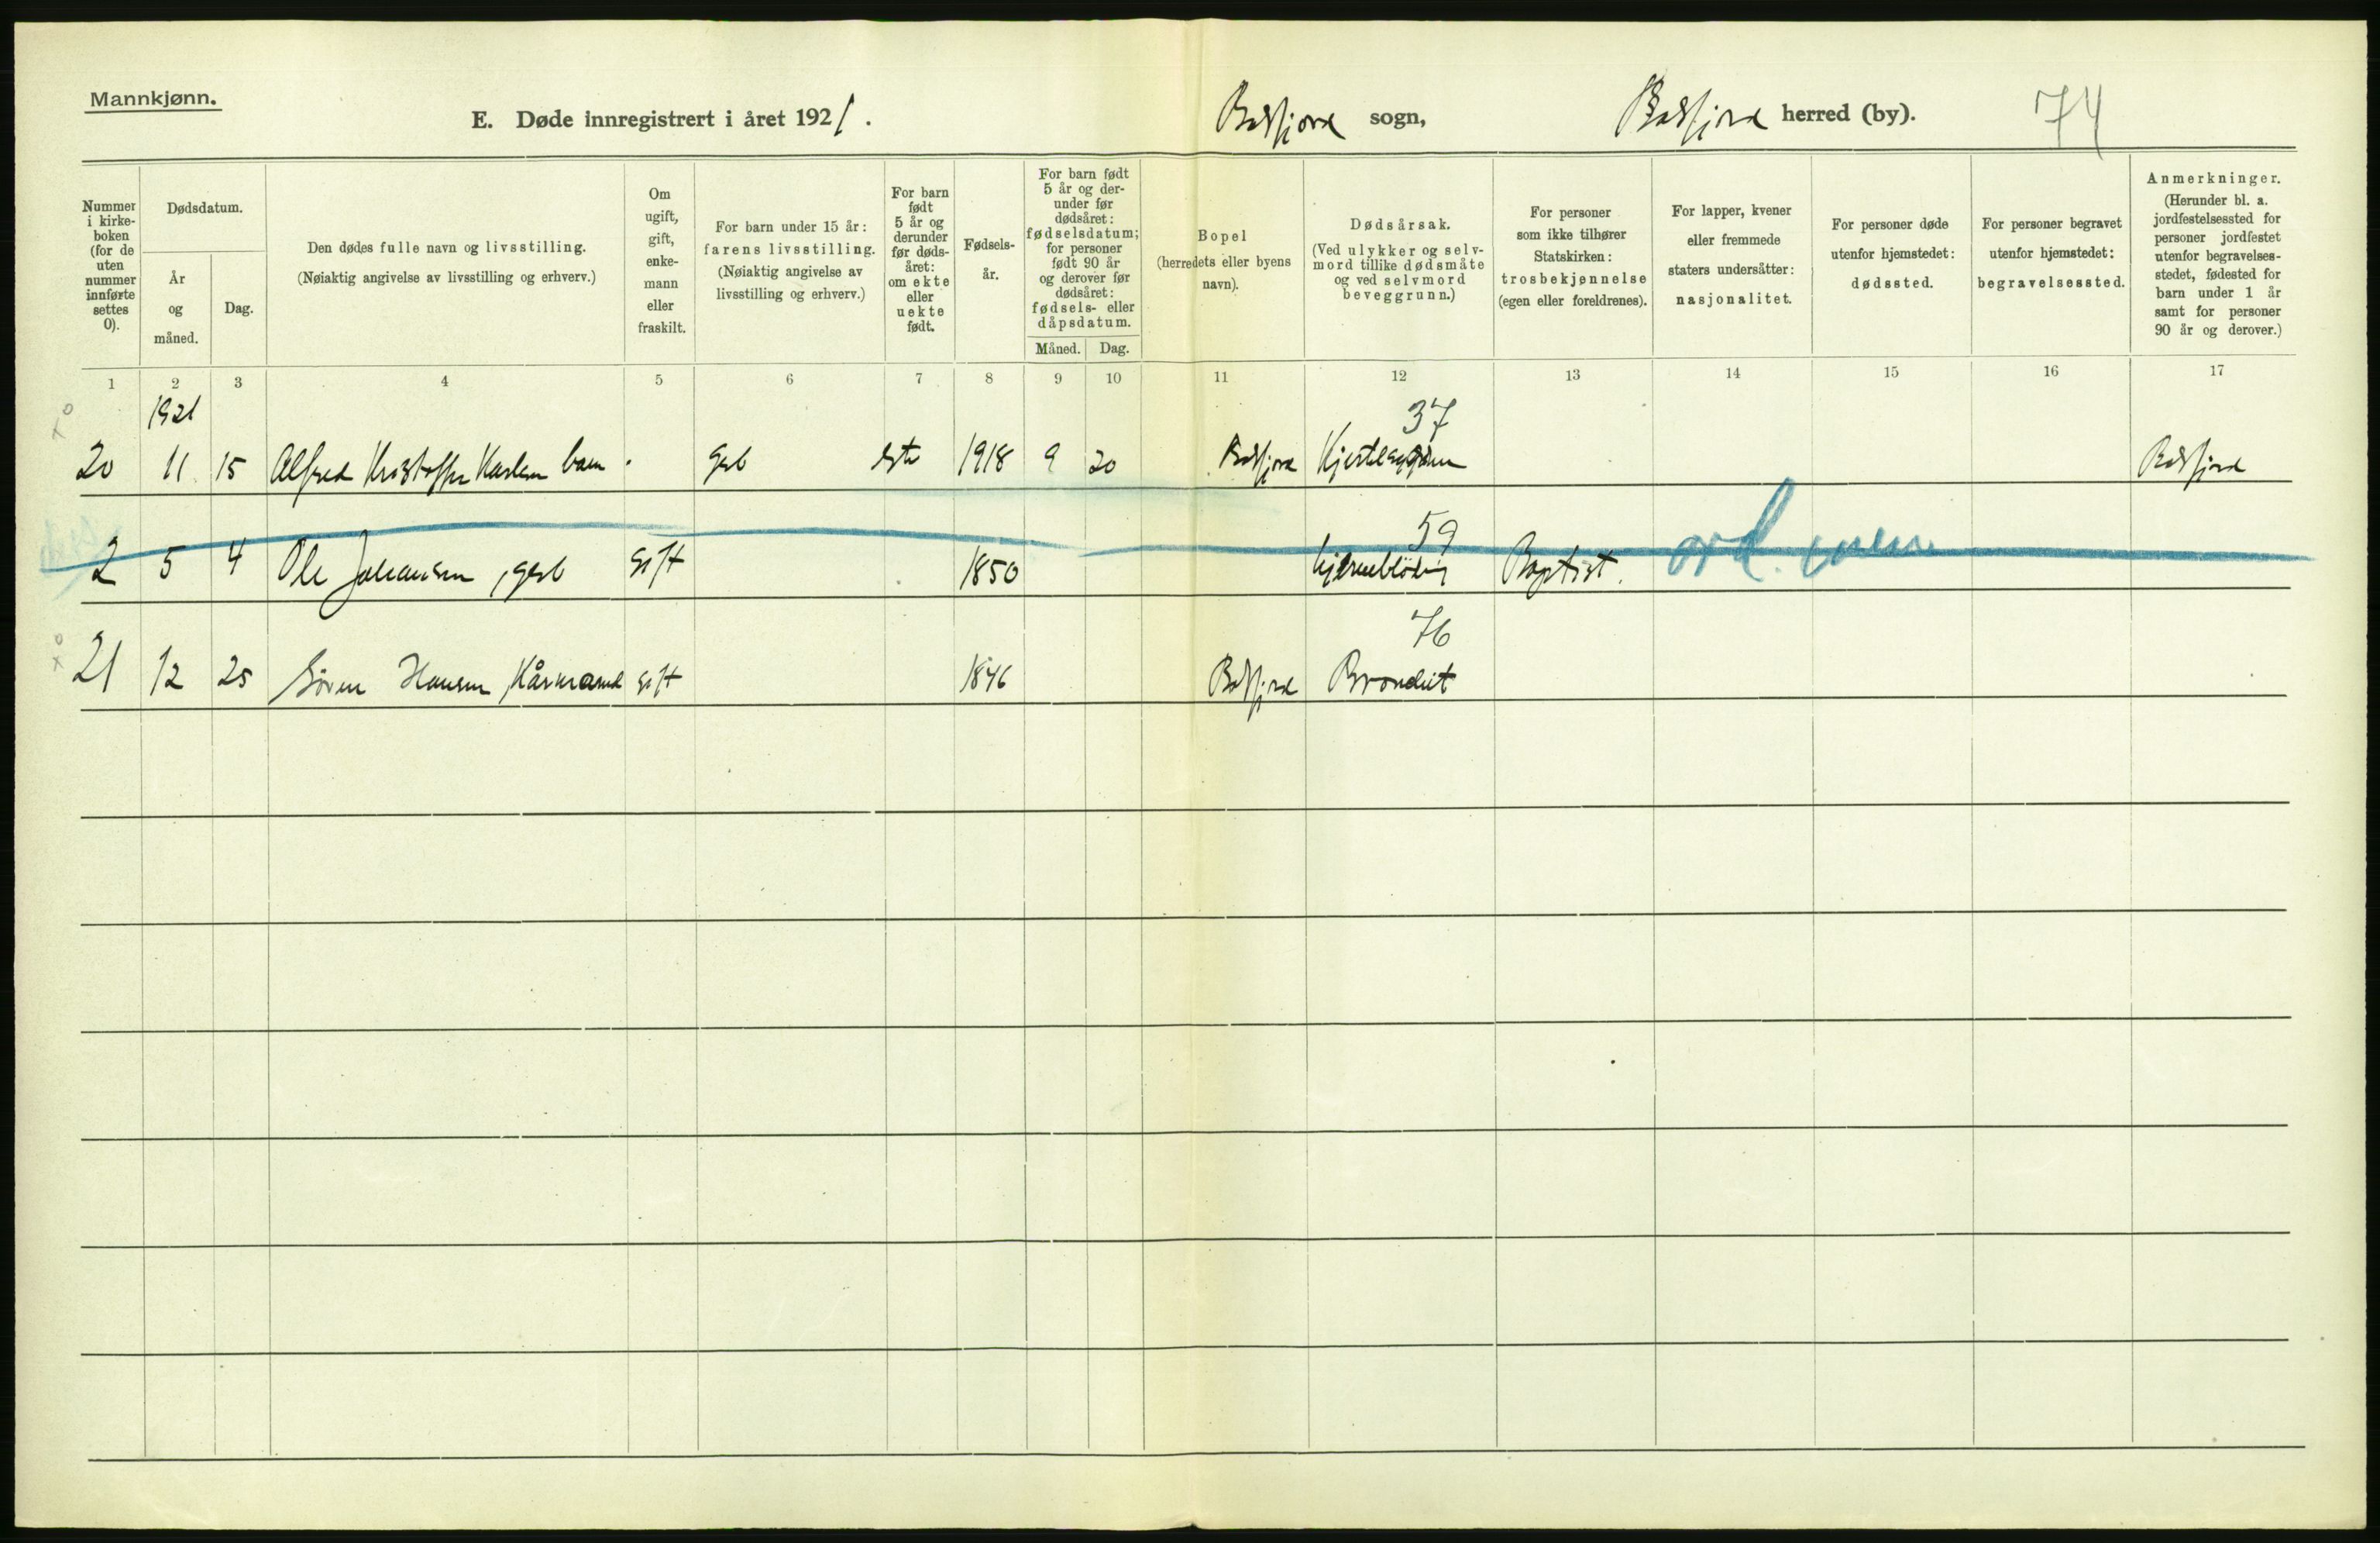 Mannkjønn.
E. Døde innregistrert i året 1921. Balsfjord sogn, Balsfjord herred (by). 74
Nummer i kirke-boken (for de uten nummer innførte settes 0).
Dødsdatum.
År og måned.
Dag.
Den dødes fulle navn og livsstilling.
(Nøiaktig angivelse av livsstilling og erhverv.)
Om ugift, gift, enke-mann eller fraskilt.
For barn under 15 år: farens livsstilling.
(Nøiaktig angivelse av livsstilling og erhverv.)
For barn født 5 år og derunder før døds-året: om ekte eller uekte født.
Fødsels-år.
For barn født 5 år og der-under før dødsåret: fødselsdatum; for personer født 90 år og derover før dødsåret: fødsels- eller dåpsdatum.
Måned. Dag.
Bopel
(herredets eller byens navn).
Dødsårsak.
(Ved ulykker og selv-mord tillike dødsmåte og ved selvmord beveggrunn.)
For personer som ikke tilhører Statskirken: trosbekjennelse (egen eller foreldrenes).
For lapper, kvener eller fremmede staters undersåtter: nasjonalitet.
For personer døde utenfor hjemstedet: dødssted.
For personer begravet utenfor hjemstedet: begravelsessted.
Anmerkninger.
(Herunder bl. a. jordfestelsessted for personer jordfestet utenfor begravelses-stedet, fødested for barn under 1 år samt for personer 90 år og derover.)
1 2 3 4 5 6 7 8 9 10 11 12 13 14 15 16 17
1921 37
20 11 15 Alfred Kristoffer Karlsen barn gbr ekte 1918 9 20 Balsfjord Balsfjord
59
2 5 4 Ole Johansen, gbr gift 1850 hjerneblödn Baptist.
76
21 12 25 Sören Hansen, Kårmand gift 1846 Balsfjord Bronchit